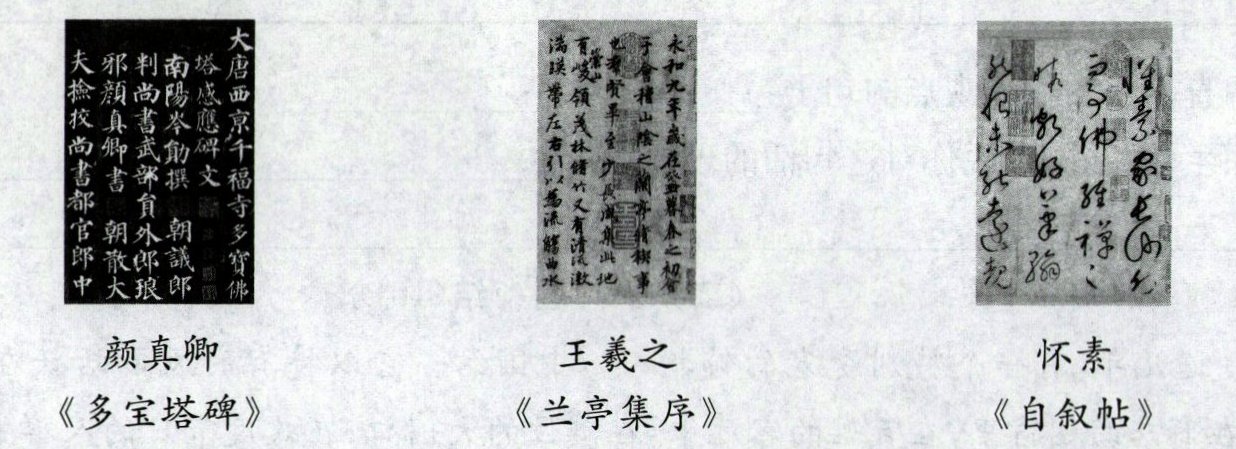 大唐西京千福寺多寶佛
塔感應碑文
南陽岑勛撰 朝議郎
判尚書武部員外郎琅
邪顏真卿書 朝散大
夫撿挍尚書都官郎中
颜真卿
《多宝塔碑》
永和九年歲在癸丑暮春之初會
于會稽山陰之蘭亭脩禊事
也羣賢畢至少長咸集此地
有崇山峻領茂林脩竹又有清流激
湍暎帶左右引以為流觴曲水
王羲之
《兰亭集序》
懷素家長沙幼
而事佛經禪之
暇頗好筆翰
然恨未能遠覩
怀素
《自叙帖》